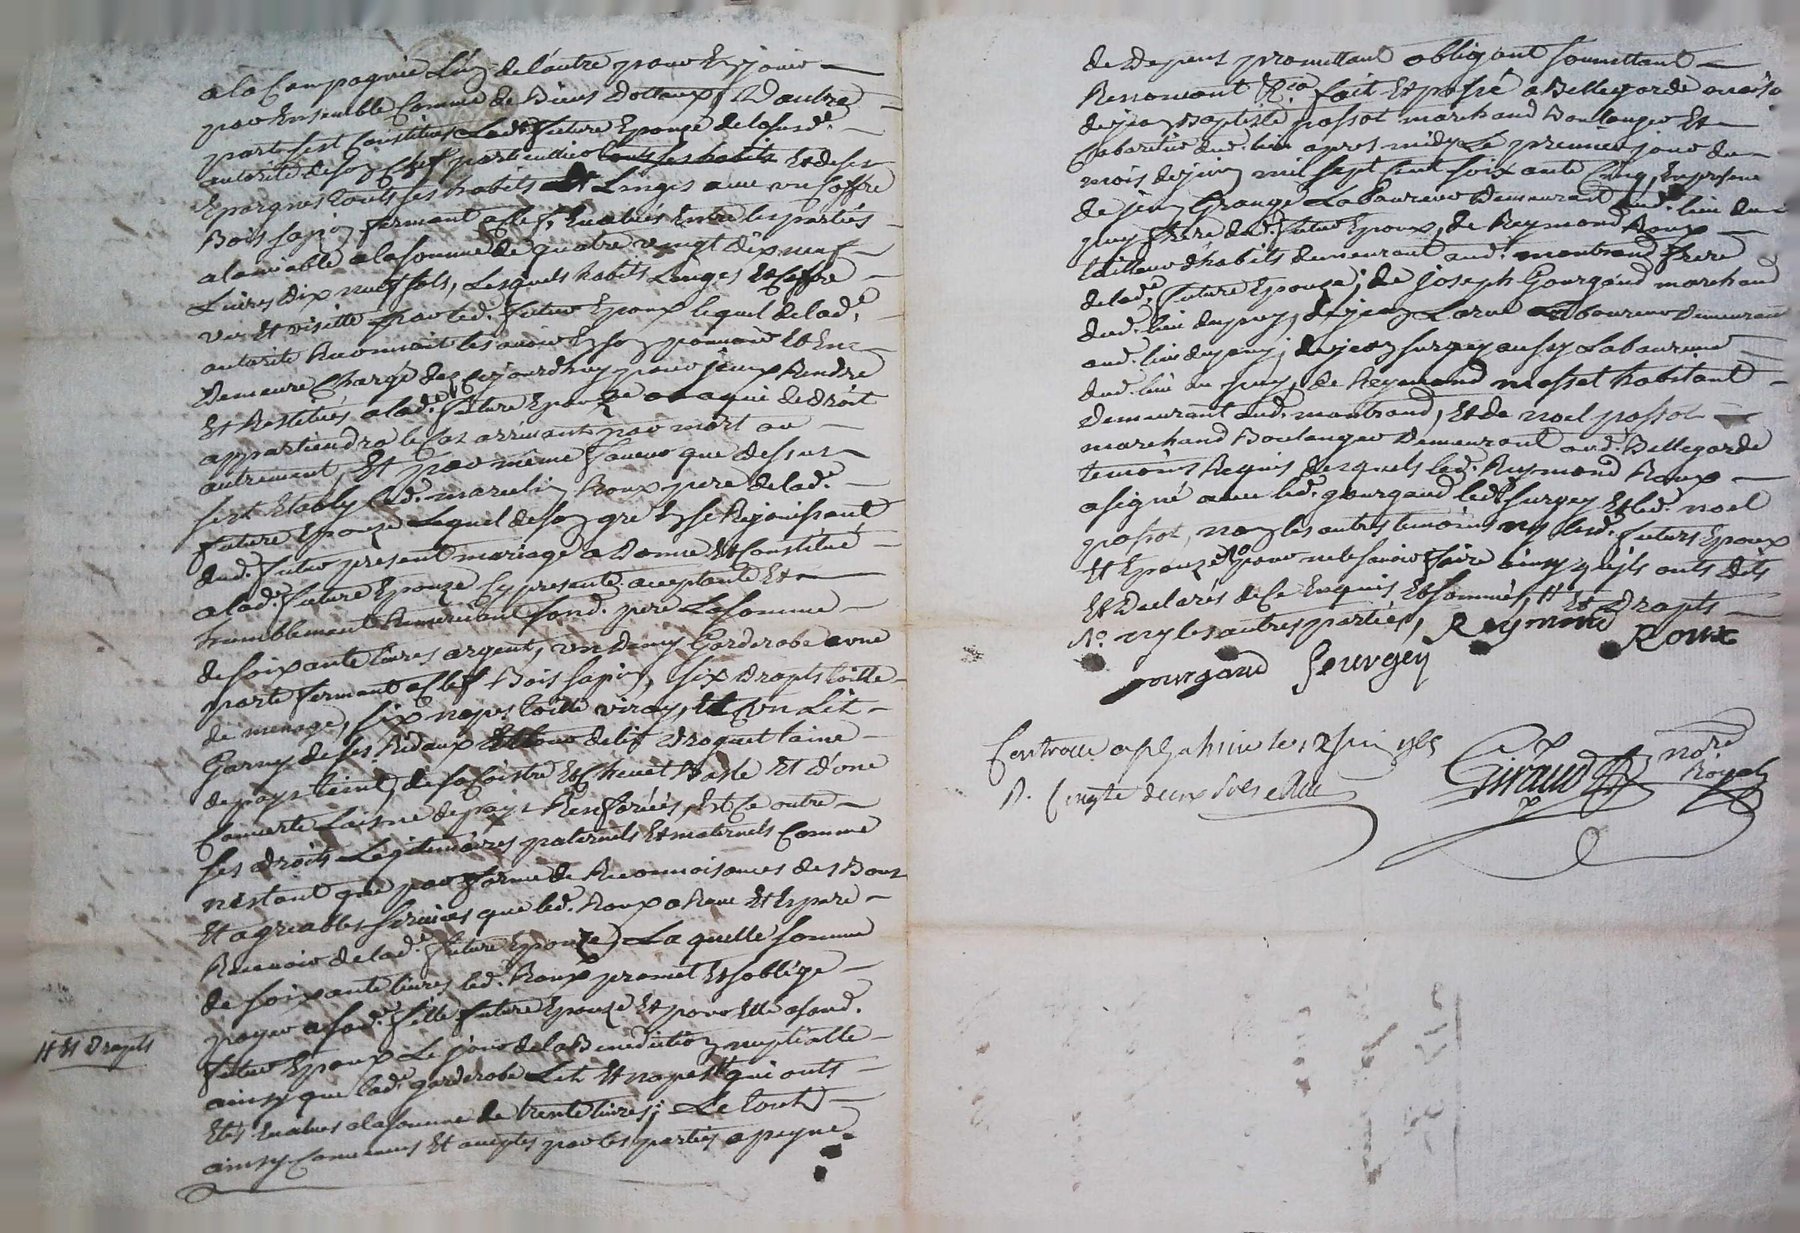 a la Compagnie L'un de l'autre pour En jouir
par Ensemble Comme de Biens Dottaux, D'autre
part s'est Constitué Lade. future Epouze de la susde.
autorité de son Chef particullier touts ses habits Et de ses
Epargnes touts ses habits Et Linges avec un Coffre
Bois sapin fermant a Clef, Evalués Entre les partiés
a lamiable a la somme de quatre vingt dix neuf
Livres dix neuf sols, Lesquels habits Linges Et Coffre
vus Et visitté par led. futur Epoux lequel de lade.
autorité Reconnoit les avoir En son pouvoir Et En
Demeure Chargé des Cejourdhuy pour jceux Rendre
Et Restitués a lade. future Epouze ou a qui de droit
appartiendra le Cas arrivant par mort ou
autrement, Et par même faveur que dessus
s'est Etably led. marcelin Roux pere de lade.
future Epouze Lequel de son gré En se Rejouissant
dud. futur present mariage a Donné Et Constitué
a lade. future Epouze Cy presente acceptante Et
humblement Remerciant sond. pere La somme
de soixante livres argent, un Demy Garderobe a une
porte fermant a Clef Bois sapin, six Drapts toille
de menage, six napes toille viron, Et Un Lit
Garny de ses Ridaux Et tour de lit Droguet laine
de pays teint, de sa Coistre Et Chevet Et d'une
Couverte Laisne de pays Renforcées, Et Ce outre
ses droits Legitimaires paternels Et maternels Comme
n'estant que par forme de Reconnoisances des Bons
Et agreables services que led. Roux a Receu Et Espere
Recevoir de lade. future Epouze, La quelle somme
de soixante livres led. Roux promet Et s'oblige
payer a sade. fille future Epouze Et pour Elle a sond.
futur Epoux Le jour de la Benediction nuptialle
ainsy que lade. garderobe Lit Et napes # qui onts
Etés Evalués a la somme de trente livres; Le tout
ainsy Convenus Et acceptés par les partiés a peyne
# Et Drapts
de Depens promettant obligeant soumettant
Renonçant &ca fait Et passé a Bellegarde maison
de jean Baptiste passot marchand Boulanger Et
Cabaretier dud. lieu apres midy Le premier jour du
mois de juin mil sept Cent soixante Cinq, En presence
de jean Grange Laboureur Demeurant aud. lieu du
puy frere dud. futur Epoux, de Reymond Roux
tailleur d'habits demeurant aud. montrond frere
de lade. future Epouze; de joseph Gourgaud marchand
dud. lieu du puy, de jean Larue Laboureur Demeurant
aud. lieu du puy; de jean surgey aussy Laboureur
dud. lieu du puy, de Reymond masset habitant
Demeurant aud. montrond, Et de noel passot
marchand Boulanger Demeurant aud. Bellegarde
temoins Requis desquels led. Reymond Roux
a signé avec led. gourgaud led. surgey Et led. noel
passot, non les autres temoins ny lesd. futurs Epoux
Et Epouze No pour ne le savoir faire ainsy qu'ils onts dits
Et Declarés de Ce Enquis Et sommés, # Et Drapts
No. ny les autres partiés, Reymond Roux
gourgaud Seurgey
Controllé a le 12 juin 1765
R. Cinqte deux sols
Giraud nore
Royal